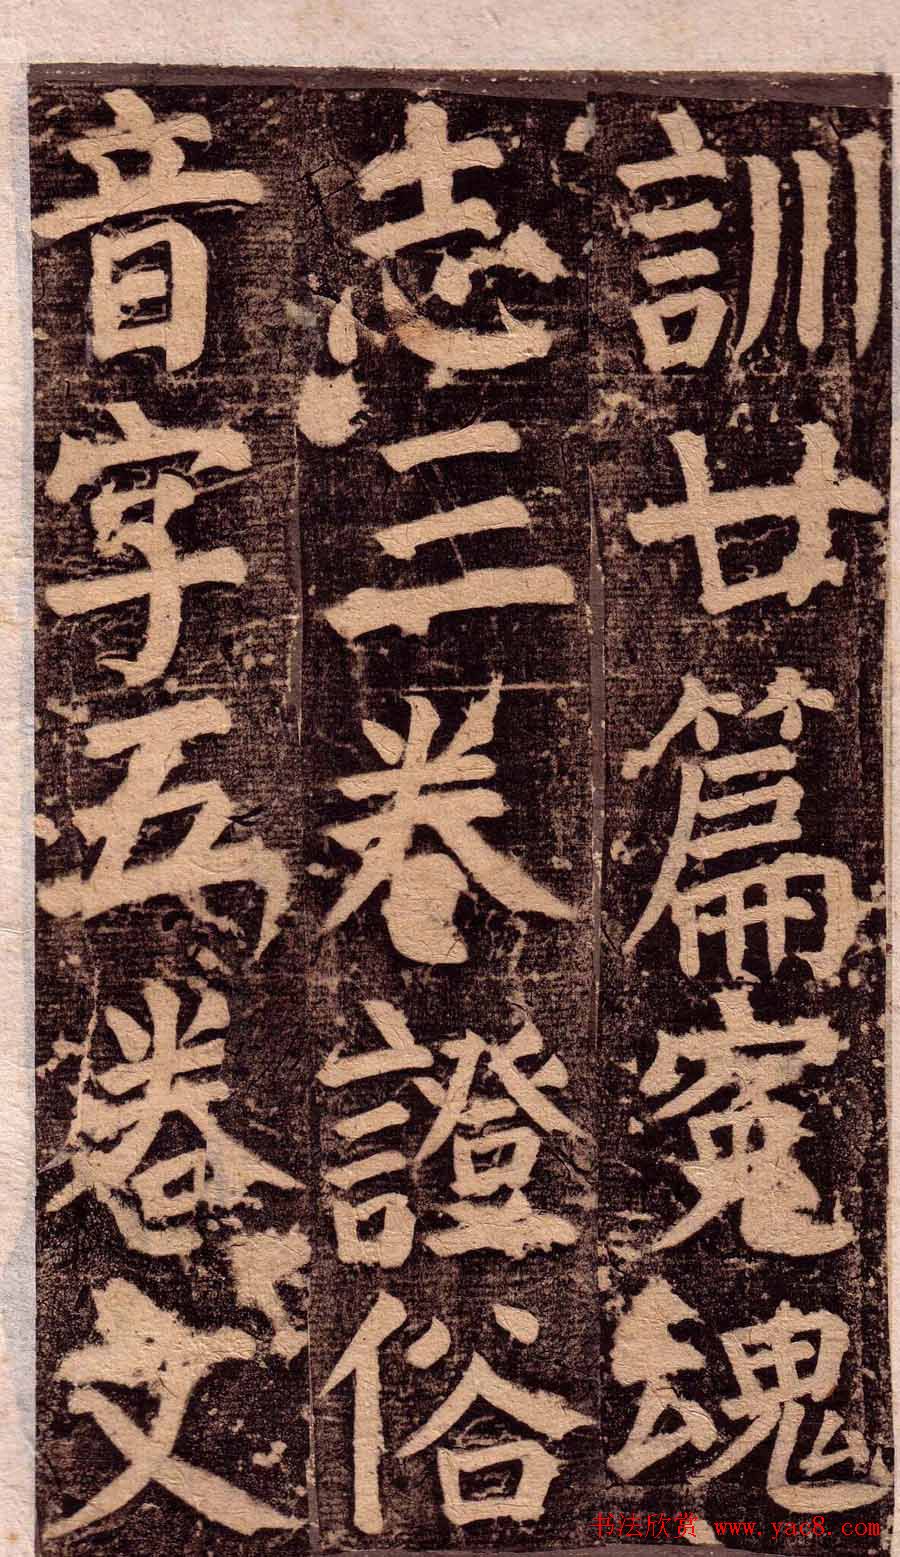 訓廿篇寃魂
志三卷證俗
音字五卷文
书法欣赏 www.yac8.com